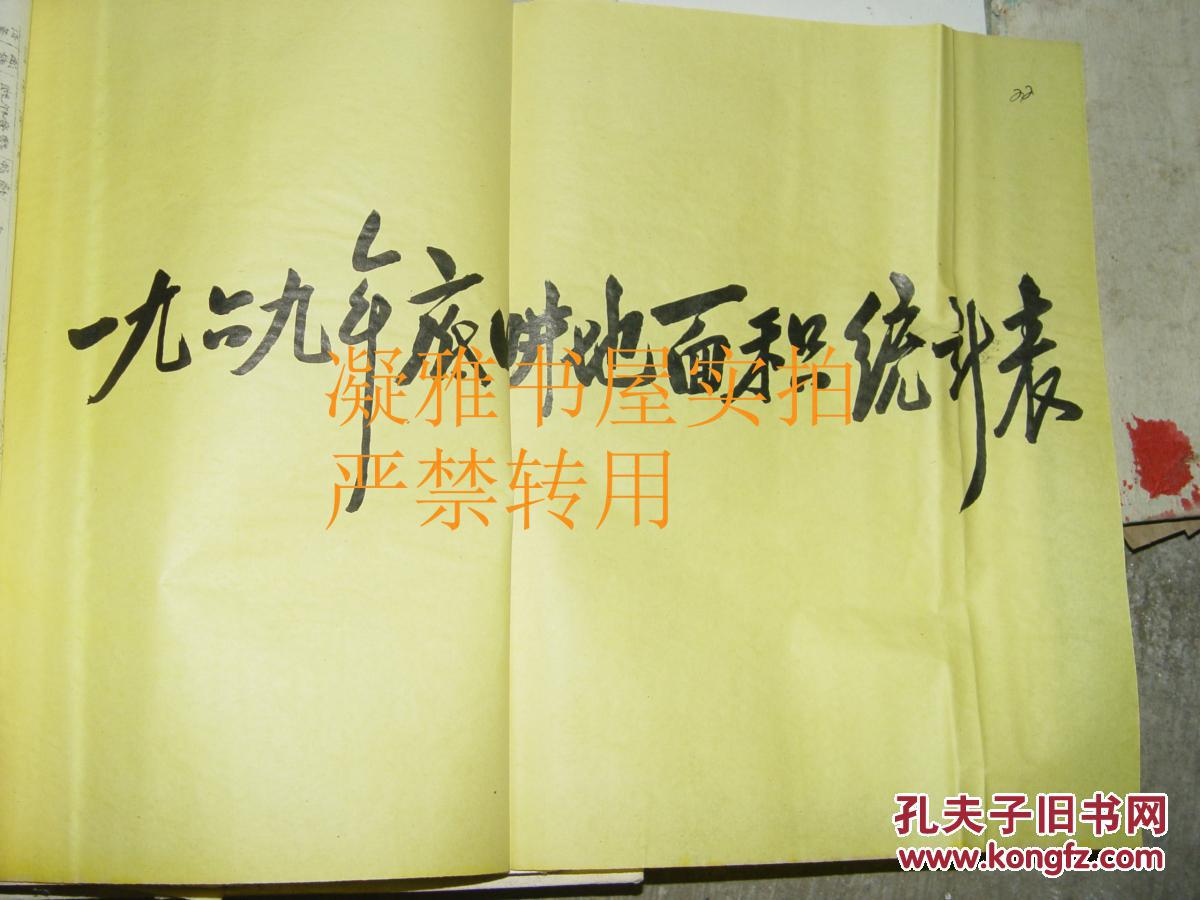 22
一九六九年底耕地面积统计表
凝雅书屋实拍
严禁转用
孔夫子旧书网
www.kongfz.com